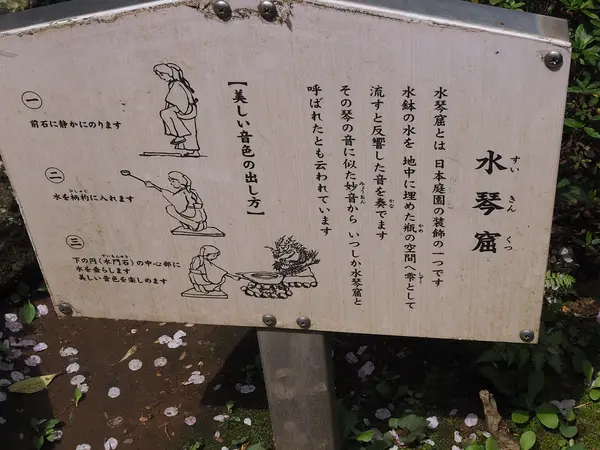 水琴窟
すいきんくつ
水琴窟とは 日本庭園の装飾の一つです
水鉢の水を 地中に埋めた瓶の空間へ雫として
かめ
しずく
流すと反響した音を奏でます
かな
その琴の音に似た妙音から いつしか水琴窟と
呼ばれたとも云われています
【美しい音色の出し方】
一
前石に静かにのります
二
水を柄杓に入れます
ひしゃく
三
下の円（水門石）の中心部に
すいもんせき
水を垂らします
美しい音色を楽しめます